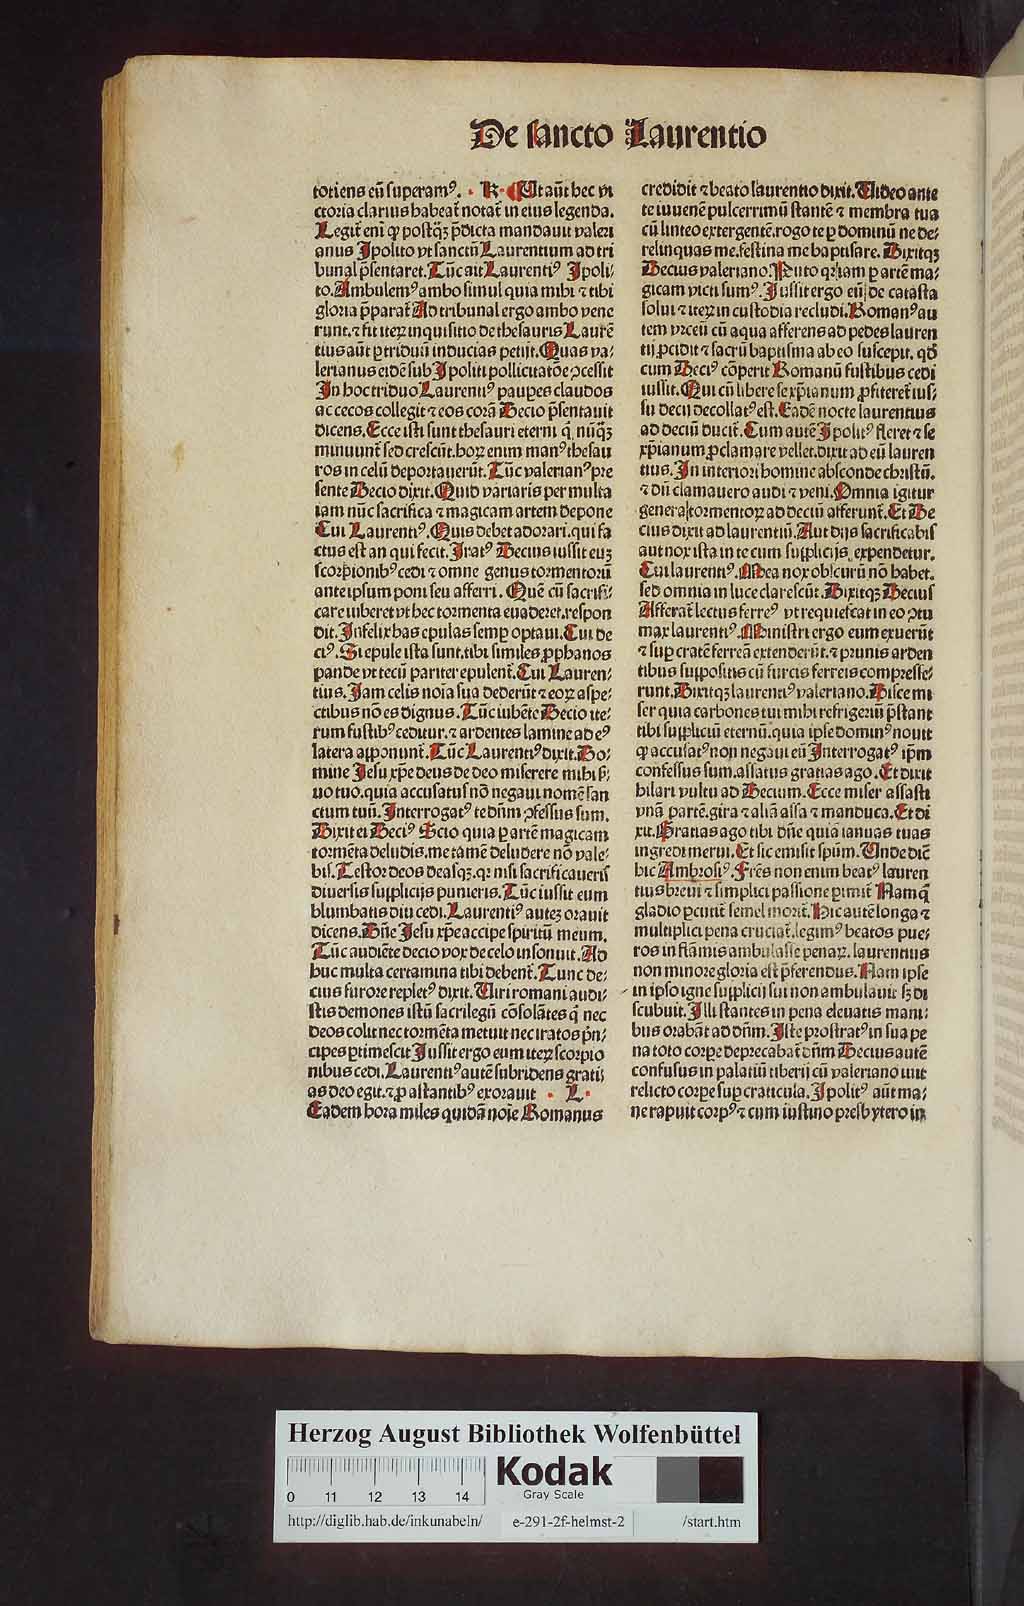 De sancto Laurentio
totiens eū superamꝰ. · K · Ut aūt hec vi
ctoria clarius habeat̄ notat̄ in eius legenda.
Legit̄ enī ꝙ postq̄ꝫ p̄dicta mandauit valeri
anus Ipolito vt sanctū Laurentium ad tri
bunal p̄sentaret. Tūc ait Laurentiꝰ Ipoli-
to. Ambulemꝰ ambo simul quia mihi ⁊ tibi
gloria p̄parat̄ Ad tribunal ergo ambo vene
runt. ⁊ fit iteꝝ inquisitio de thesauris Laurē
tius aūt ꝑ triduū inducias petijt. Quas va-
lerianus eidē sub Ipoliti pollicitatōe ꝯcessit
In hoc triduo Laurentiꝰ paupes claudos
ac cecos collegit ⁊ eos corā Decio p̄sentauit
dicens. Ecce isti sunt thesauri eterni q̄ nūq̄ꝫ
minuunt̄ sed crescūt. hoꝝ enim manꝰ thesau
ros in celū deportauerūt. Tūc valerianꝰ pre
sente Decio dixit. Quid variaris per multa
iam nūc sacrifica ⁊ magicam artem depone
Cui Laurentiꝰ. Quis debet adorari. qui fa
ctus est an qui fecit. Iratꝰ Decius iussit euꝫ
scorp̄ionibꝰ cedi ⁊ omne genus tormentorū
ante ipsum poni seu afferri. Quē cū sacrifi-
care iuberet vt hec tormenta euaderet. respon
dit. Infelix has epulas semꝑ optaui. Cui de
ciꝰ. Si epule ista sunt. tibi similes ꝓphanos
pande vt tecū pariter epulent̄. Cui Lauren-
tius. Iam celis noīa sua dederūt ⁊ eoꝝ aspe-
ctibus nō es dignus. Tūc iubēte Decio ite-
rum fustibꝰ ceditur. ⁊ ardentes lamine ad eꝰ
latera apponunt̄. Tūc Laurentiꝰ dixit. Do-
mine Jesu xp̄e deus de deo miserere mihi ẜ-
uo tuo. quia accusatus nō negaui nomē san
ctum tuū. Interrogatꝰ te dn̄m ꝯfessus sum.
Dixit ei Deciꝰ Scio quia ꝑ artē magicam
tormēta deludis. me tamē deludere nō vale-
bis. Testor deos deasqꝫ. qꝛ nisi sacrificaueris
diuersis supplicijs punieris. Tūc iussit eum
blumbatis diu cedi. Laurentiꝰ auteꝫ orauit
dicens. Dn̄e Jesu xp̄e accipe spiritū meum.
Tūc audiēte decio vox de celo insonuit. Ad
huc multa certamina tibi debent̄. Tunc de-
cius furore repletꝰ dixit. Uiri romani audi-
stis demones istū sacrilegū cōsolātes q̄ nec
deos colit nec tormēta metuit nec iratos p̄n-
cipes ꝑtimescit Iussit ergo eum iteꝝ scorpio
nibus cedi. Laurentiꝰ autē subridens grati
as deo egit. ⁊ ꝓ astantibꝰ exorauit · L ·
Eadem hora miles quidā noīe Romanus
credidit ⁊ beato laurentio dixit. Uideo ante
te iuuenē pulcerrimū stantē ⁊ membra tua
cū linteo extergentē. rogo te ꝑ dominū ne de-
relinquas me. festina me baptisare. Dixitqꝫ
Decius valeriano. Puto qꝛ iam ꝑ artē ma-
gicam victi sumꝰ. Iussit ergo eū de catasta
solui ⁊ iteꝝ in custodia recludi. Romanꝰ au
tem vrceū cū aqua afferens ad pedes lauren
tij ꝓcidit ⁊ sacrū baptisma ab eo suscepit. qd̄
cum Deciꝰ cōperit Romanū fustibus cedi
iussit. Qui cū libere se xp̄ianum ꝓfiteret̄ ius-
su decij decollatꝰ est. Eadē nocte laurentius
ad deciū ducit̄. Cum autē Ipolitꝰ fleret ⁊ se
xp̄ianum ꝓclamare vellet. dixit ad eū lauren
tius. In interiori homine absconde christū.
⁊ dū clamauero audi ⁊ veni. Omnia igitur
genera tormentoꝝ ad deciū afferunt̄. Et De
cius dixit ad laurentiū. Aut dijs sacrificabis
aut nox ista in te cum supplicijs expendetur.
Cui laurentiꝰ. Mea nox obscurū nō habet.
sed omnia in luce clarescūt. Dixitqꝫ Decius
Afferat̄ lectus ferreꝰ vt requiescat in eo ꝯtu
max laurentiꝰ. Ministri ergo eum exuerūt
⁊ suꝑ cratē ferreā extenderūt. ⁊ prunis arden
tibus suppositis cū furcis ferreis compresse-
runt. Dixitqꝫ laurentiꝰ valeriano. Disce mi
ser quia carbones tui mihi refrigeriū p̄stant
tibi suppliciū eternū. quia ipse dominꝰ nouit
ꝙ accusatꝰ non negaui eū Interrogatꝰ ip̄m
confessus sum. assatus gratias ago. Et dixit
hilari vultu ad Decium. Ecce miser assasti
vnā partē. gira ⁊ aliā assa ⁊ manduca. Et di
xit. Gratias ago tibi dn̄e quia ianuas tuas
ingredi merui. Et sic emisit spūm. Unde dic̄
hic Ambrosiꝰ. Fr̄es non enim beatꝰ lauren
tius breui ⁊ simplici passione ꝑimit̄ Nam q̄
gladio ꝑcutit̄ semel morit̄. Hic autē longa ⁊
multiplici pena cruciat̄. legimꝰ beatos pue-
ros in flāmis ambulasse penaꝝ. laurentius
non minore gloria est p̄ferendus. Nam ipse
in ipso igne supplicij sui non ambulauit sꝫ di
scubuit. Illi stantes in pena eleuatis mani-
bus orabāt ad dn̄m. Iste prostratꝰ in sua pe
na toto corpe deprecabat̄ dn̄m Decius autē
confusus in palatiū tiberij cū valeriano iuit
relicto corpe suꝑ craticula. Ipolitꝰ aūt ma-
ne rapuit corpꝰ ⁊ cum iustino presbytero in
Herzog August Bibliothek Wolfenbüttel
Kodak
Gray Scale
0 11 12 13 14
http://diglib.hab.de/inkunabeln/ e-291-2f-helmst-2 /start.htm